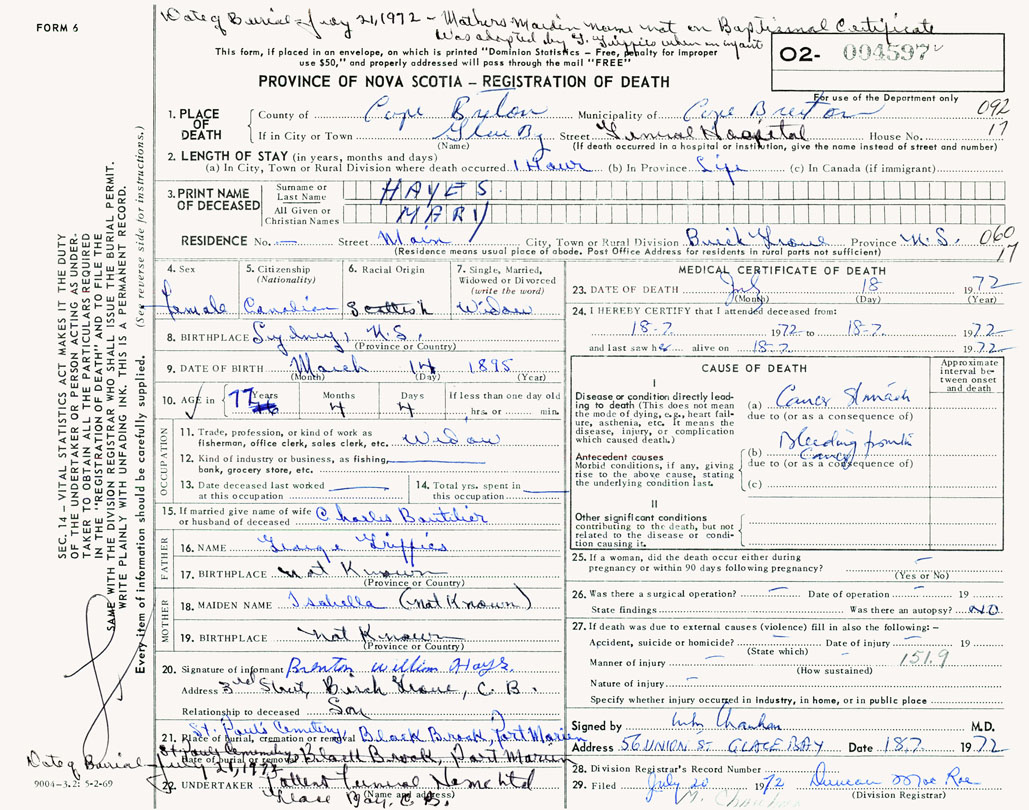 Date of Burial - July 21, 1972 - Mothers Maiden name not on Baptismal Certificate
Was adopted by G. Trippies when an infant
FORM 6
This form, if placed in an envelope, on which is printed "Dominion Statistics – Free, penalty for improper
use $50," and properly addressed will pass through the mail "FREE"
02- 004597
PROVINCE OF NOVA SCOTIA – REGISTRATION OF DEATH
For use of the Department only
092
17
1. PLACE OF DEATH
County of Cape Breton Municipality of Cape Breton
If in City or Town Glace Bay Street General Hospital House No.
(Name) (If death occurred in a hospital or institution, give the name instead of street and number)
2. LENGTH OF STAY (in years, months and days)
(a) In City, Town or Rural Division where death occurred 1 Hour (b) In Province Life (c) In Canada (if immigrant)
3. PRINT NAME OF DECEASED
Surname or Last Name HAYES
All Given or Christian Names MARY
RESIDENCE No. — Street Main City, Town or Rural Division Birch Grove Province N.S. 060
17
(Residence means usual place of abode. Post Office Address for residents in rural parts not sufficient)
4. Sex
female
5. Citizenship
(Nationality)
Canadian
6. Racial Origin
Scottish
7. Single, Married,
Widowed or Divorced
(write the word)
Widow
8. BIRTHPLACE Sydney, N.S.
(Province or Country)
9. DATE OF BIRTH March 14 1895
(Month) (Day) (Year)
10. AGE in 77 Years 4 Months 4 Days
If less than one day old
hrs. or min.
OCCUPATION
11. Trade, profession, or kind of work as
fisherman, office clerk, sales clerk, etc. Widow
12. Kind of industry or business, as fishing,
bank, grocery store, etc.
13. Date deceased last worked
at this occupation
14. Total yrs. spent in
this occupation
15. If married give name of wife
or husband of deceased Charles Boutilier
FATHER
16. NAME George Trippies
17. BIRTHPLACE Not Known
(Province or Country)
MOTHER
18. MAIDEN NAME Isabella (Not Known)
19. BIRTHPLACE Not Known
(Province or Country)
20. Signature of informant Brenton William Hays.
Address 3rd Street, Birch Grove, C.B.
Relationship to deceased Son
St. Paul's Cemetery
21. Place of burial, cremation or removal Black Brook, Port Morien
St. Pauls Cemetery Black Brook, Port Morien
Date of burial or removal July 21, 1972
22. UNDERTAKER Funeral Home Ltd
(Name and address)
Glace Bay, C.B.
MEDICAL CERTIFICATE OF DEATH
23. DATE OF DEATH July 18 1972
(Month) (Day) (Year)
24. I HEREBY CERTIFY that I attended deceased from:
18-7 1972 to 18-7. 1972
and last saw her alive on 18-7. 1972
CAUSE OF DEATH
Approximate
interval between
onset
and death
I
Disease or condition directly leading
to death (This does not mean
the mode of dying, e.g., heart failure,
asthenia, etc. it means the
disease, injury, or complication
which caused death.)
(a) Cancer Stomach
due to (or as a consequence of)
Antecedent causes
Morbid conditions, if any, giving
rise to the above cause, stating
the underlying condition last.
(b) Bleeding from the
Cancer
due to (or as a consequence of)
(c)
II
Other significant conditions
contributing to the death, but not
related to the disease or condition
causing it.
25. If a woman, did the death occur either during
pregnancy or within 90 days following pregnancy? —
(Yes or No)
26. Was there a surgical operation? — Date of operation — 19
State findings Was there an autopsy? NO
27. If death was due to external causes (violence) fill in also the following: –
Accident, suicide or homicide? — Date of injury — 19
(State which)
Manner of injury — 151.9
(How sustained)
Nature of injury —
Specify whether injury occurred in industry, in home, or in public place
Signed by M.D.
Address 56 UNION ST GLACE BAY Date 18.7. 1972
28. Division Registrar's Record Number
29. Filed July 20 1972 Duncan
(Division Registrar)
SEC. 14 – VITAL STATISTICS ACT MAKES IT THE DUTY
OF THE UNDERTAKER OR PERSON ACTING AS UNDERTAKER
TO OBTAIN ALL THE PARTICULARS REQUIRED
IN THE "REGISTRATION OF DEATH" AND TO FILE THE
SAME WITH THE DIVISION REGISTRAR WHO SHALL ISSUE THE BURIAL PERMIT.
WRITE PLAINLY WITH UNFADING INK. THIS IS A PERMANENT RECORD.
Every item of information should be carefully supplied. (See reverse side for instructions.)
Date of Burial -
9004-3.2: 5-2-69